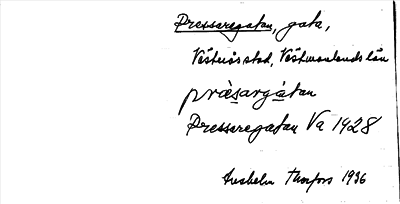 Pressaregatan, gata,
Västerås stad, Västmanlands län
præsargátan
Pressaregatan Va 1928
Thorfors 1936